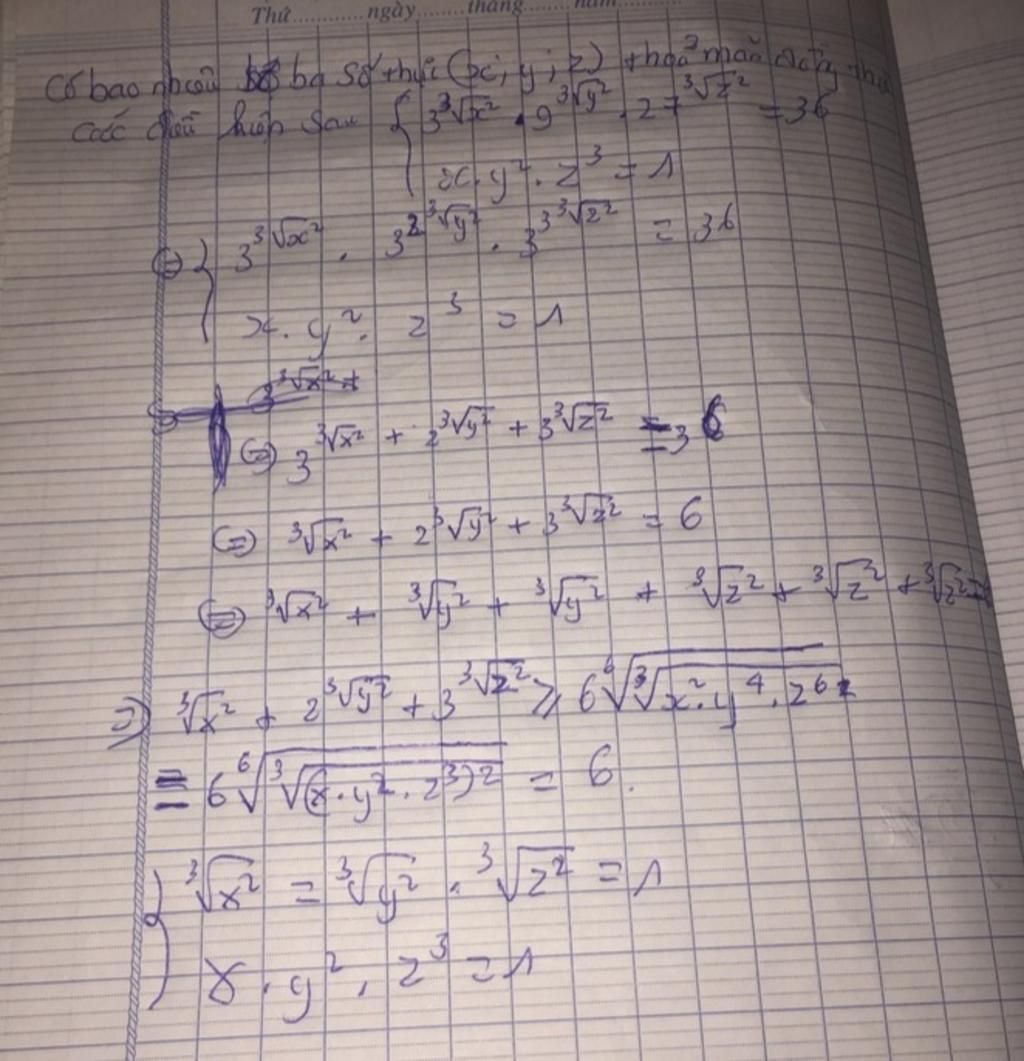 Thứ............ngày........tháng........năm.........
Có bao nhiêu bộ ba số thực (x; y; z) thoả mãn
các điều kiện sau { 3^∛x² . 9^∛y² . 27^∛z² = 36
x. y². z³ = 1
⇔ { 3^∛x² . 3^2∛y² . 3^3∛z² = 36
x. y². z³ = 1
3^∛x² +
⇔ 3^∛x² + 2∛y² + 3∛z² = 36
⇔ ∛x² + 2∛y² + 3∛z² = 6
⇔ ∛x² + ∛y² + ∛y² + ∛z² + ∛z² + ∛z²
⇒ ∛x² + 2∛y² + 3∛z² ≥ 6 ⁶√∛x². y⁴. z⁶
= 6 ⁶√∛(x. y². z³)² = 6.
{ ∛x² = ∛y² . ∛z² = 1
x. y². z³ = 1